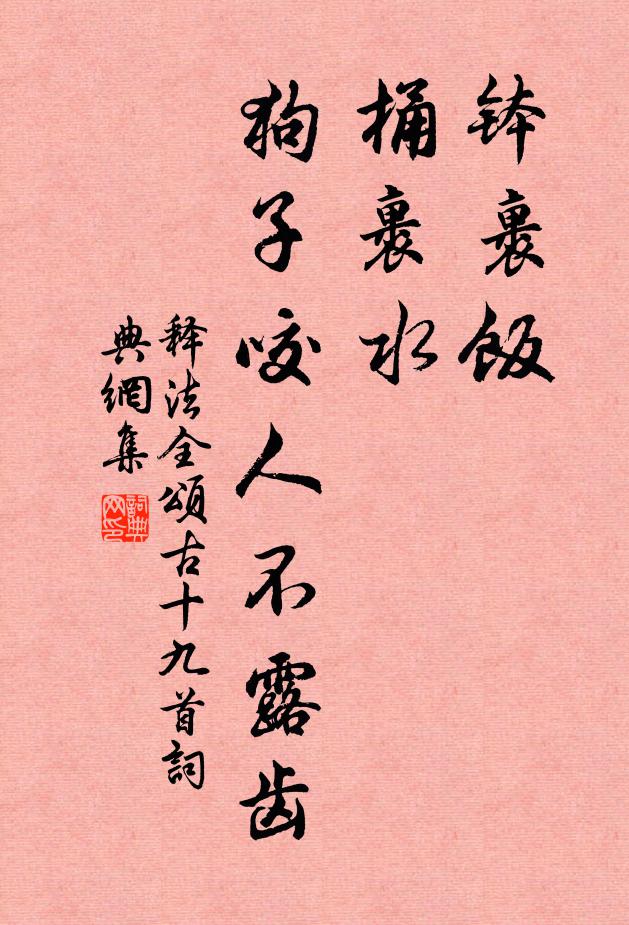 钵裹饭
桶裹水
狗子咬人不露齿
释法全頌古十九首詞
典網集
詞典
网印